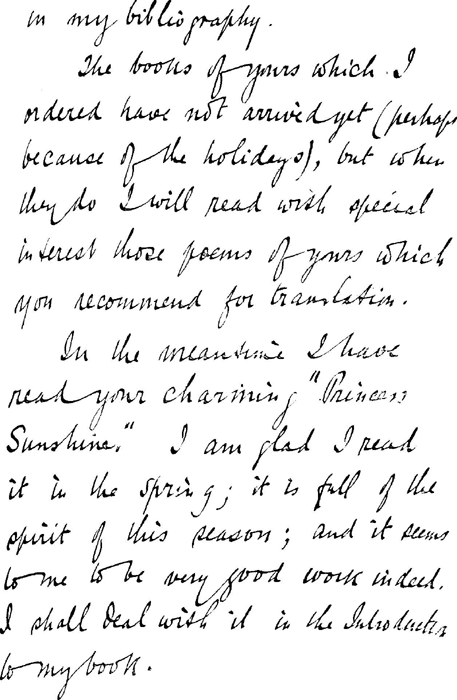 in my bibliography.
The books of yours which I
ordered have not arrived yet (perhaps
because of the holidays), but when
they do I will read with special
interest those poems of yours which
you recommend for translation.
In the meantime I have
read your charming "Princess
Sunshine." I am glad I read
it in the spring; it is full of the
spirit of this season; and it seems
to me to be very good work indeed.
I shall deal with it in the Introduction
to my book.